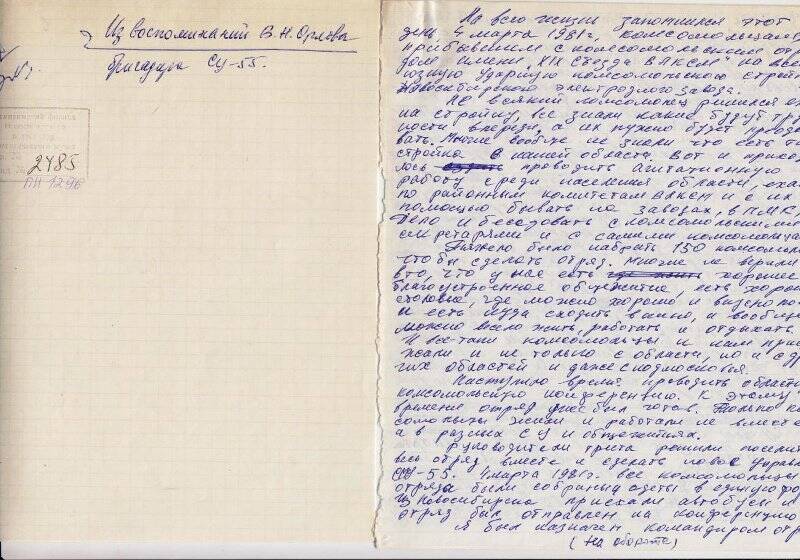 Из воспоминаний В.Н. Орлова
бригадира СУ-55.
2485
На всю жизнь запомнился этот
день 4 марта 1981г. комсомольцам
прибывшим с комсомольским от
дом имени "XIX съезда ВЛКСМ" на все
юзную ударную комсомольскую строй
Новосибирского электродного завода.
Не всякий комсомолец решился
на стройку, все знали какие будут тру
ности впереди, а их нужно будет
вать. Многие вообще не знали что есть та
стройка в нашей области. Вот и прихо
лось проводить агитационную
работу среди населения области,
по районным комитетам ВЛКСМ и с их
помощью бывать на заводах, в ПМК,
Депо и беседовать с комсомольскими
секретарями и с самими комсомольца
Тяжело было набрать 150 комсомоль
чтобы сделать отряд. Многие не верили
в то, что у нас есть хорошее
благоустроенное общежитие, есть хоро
столовые, где можно хорошо и вкусно по
и есть куда сходить вечно, и вообще
можно весело жить, работать и отдыхать
И все-таки комсомольцы к нам при
жали и не только с области, но и с др
гих областей и даже с подмосковья.
Наступило время проводить област
комсомольскую конференцию. К этому
времени отряд уже был готов. Только
сомольцы жили и работали не вместе
а в разных СУ и общежитиях.
Руководители треста решили поселит
весь отряд вместе и сделать новое управл
СУ-55. 4 марта 1981г. все комсомольцы
отряда были собраны одеты в единую фо
Из Новосибирска пришли автобусы и
отряд был отправлен на конференцию
Я был назначен командиром отр
(на обороте)